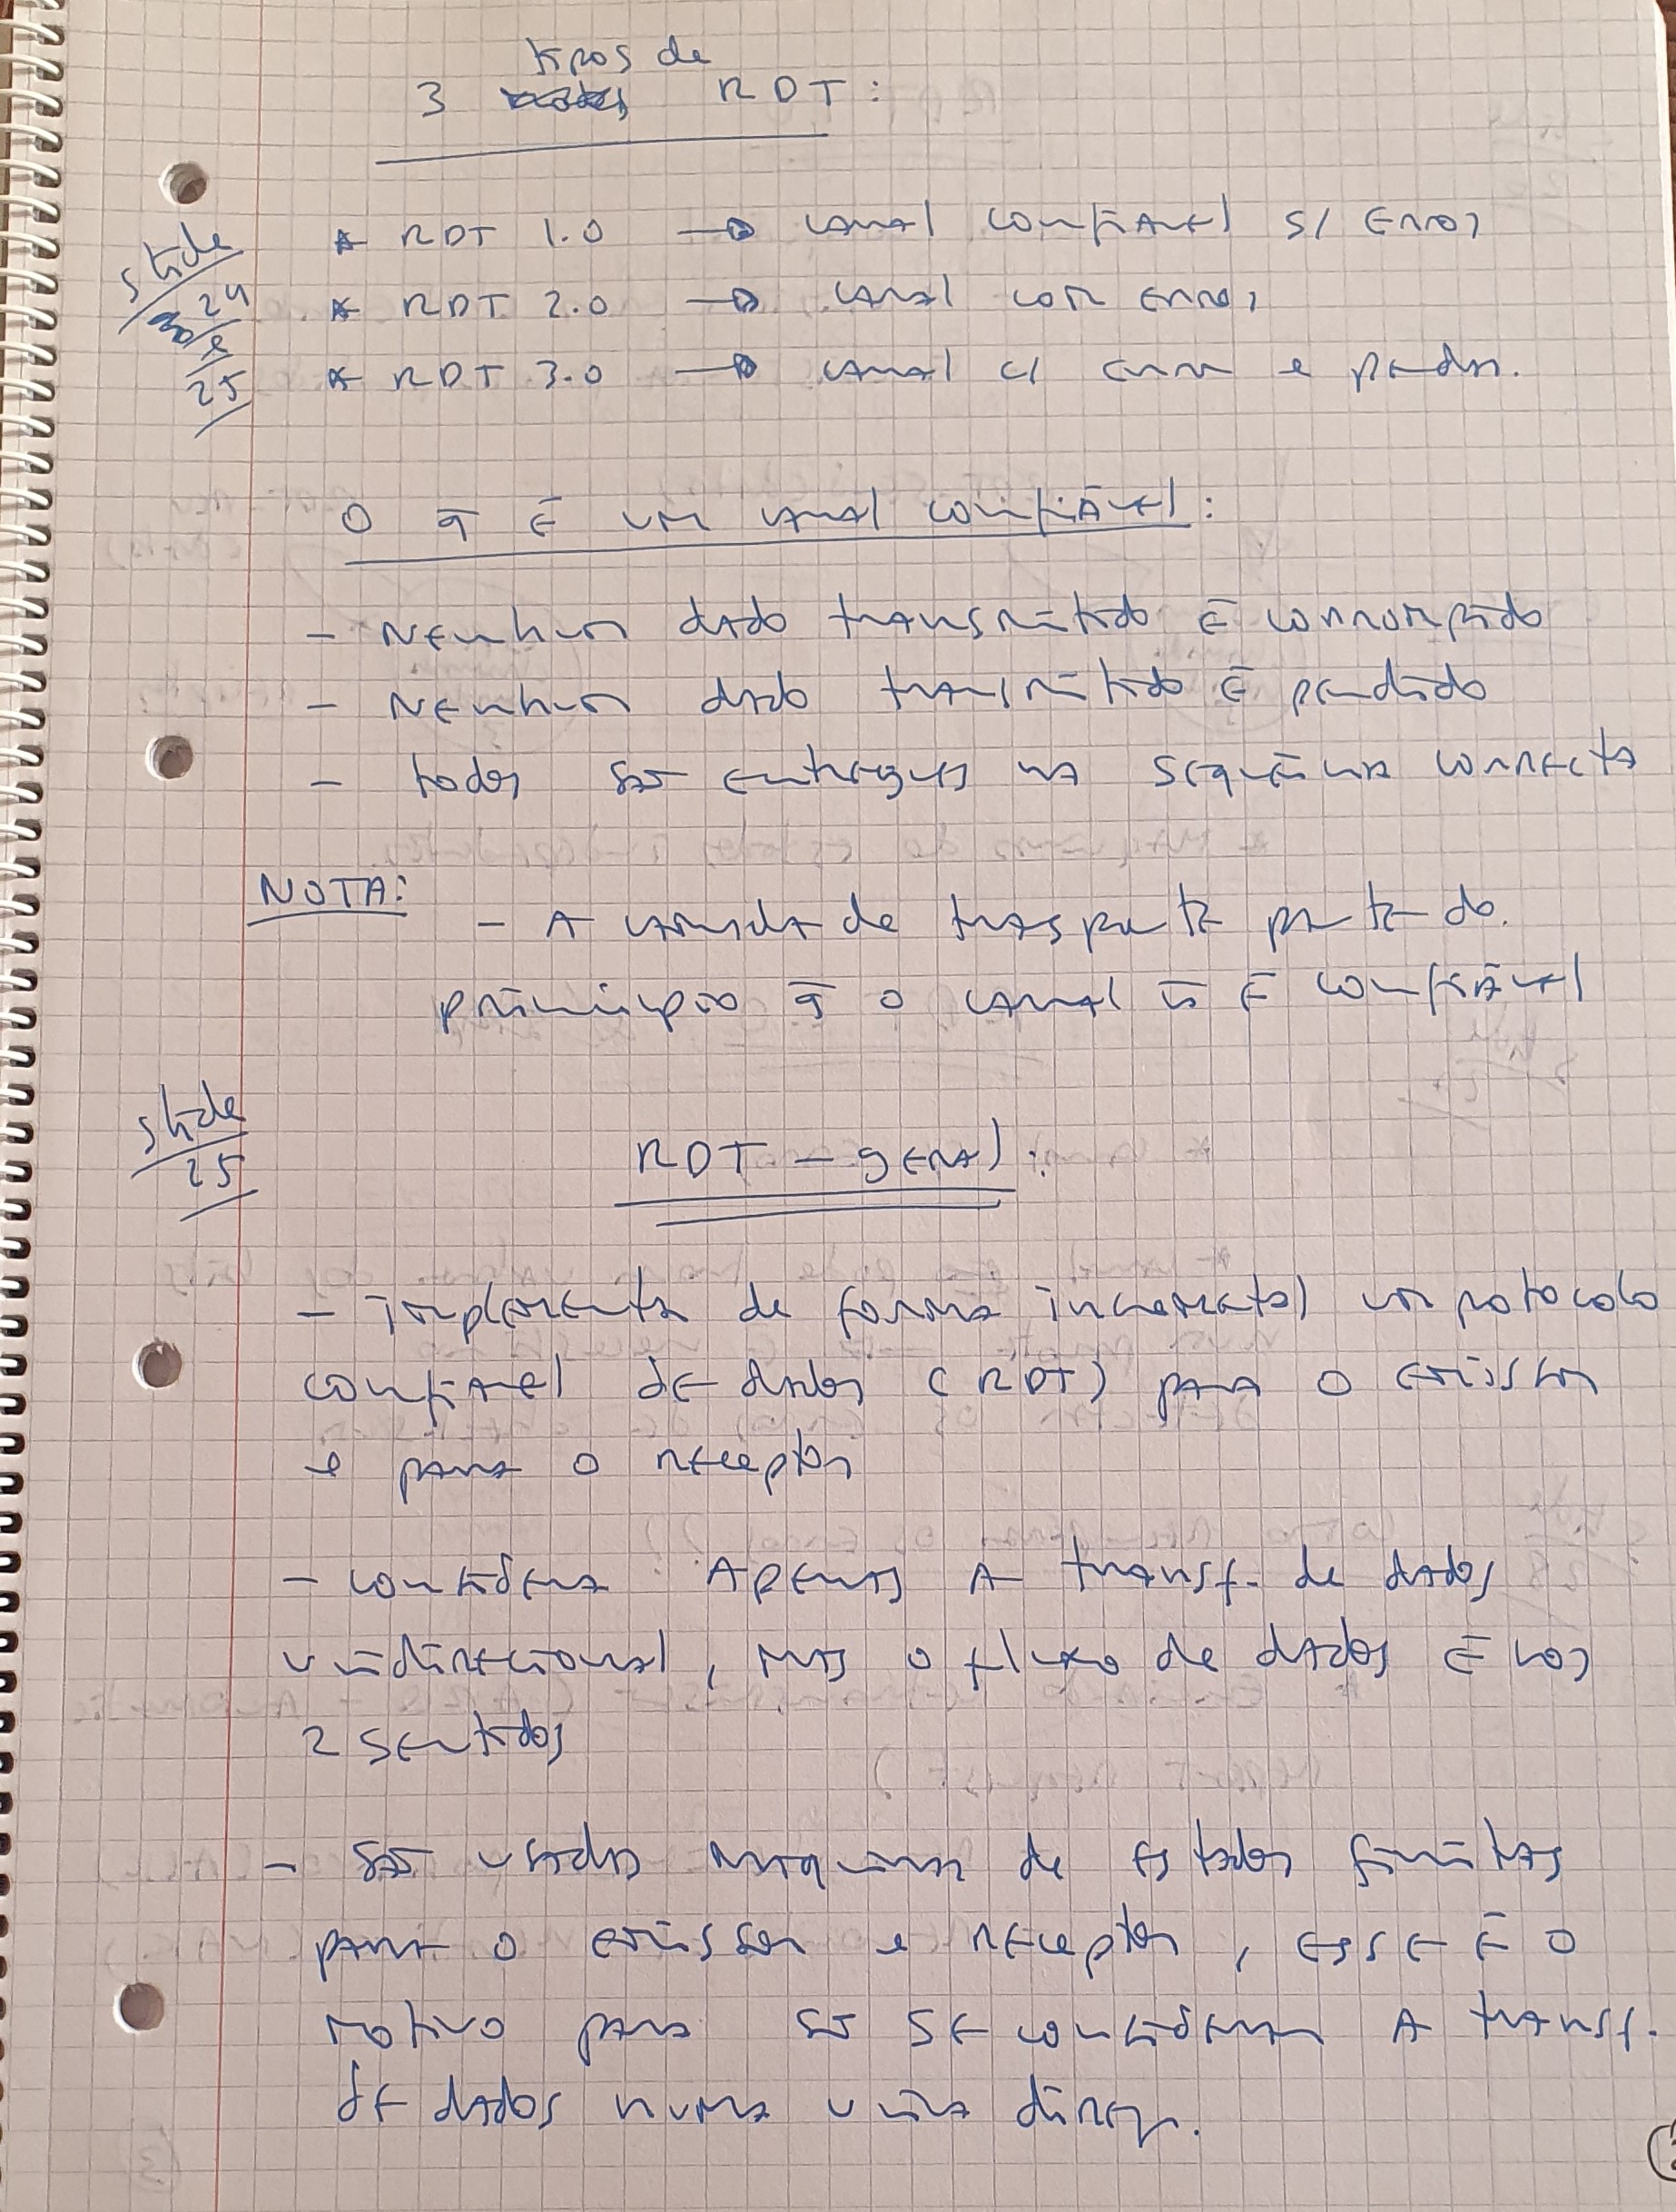 tipos de
3 RDT:
slide
24
e
25
* RDT 1.0 → canal confiavel s/ erros
* RDT 2.0 → canal com erros
* RDT 3.0 → canal c/ erros e perdas.
O q̄ é um canal confiável:
- Nenhum dado transmitido é corrompido
- Nenhum dado transmitido é perdido
- todos são entregues na sequência correcta
NOTA: - A camada de trasporte parte do.
princípio q̄ o canal ñ é confiável
slide
25
RDT - geral:
- implementa de forma incremental um protocolo
confiavel de dados (RDT) para o emissor
e para o receptor
- considera apenas a transf. de dados
unidirecional, mas o fluxo de dados é nos
2 sentidos
- são usadas maquinas de estados finitas
para o emissor e receptor, esse é o
motivo para só se considerar a transf.
de dados numa unica direção.